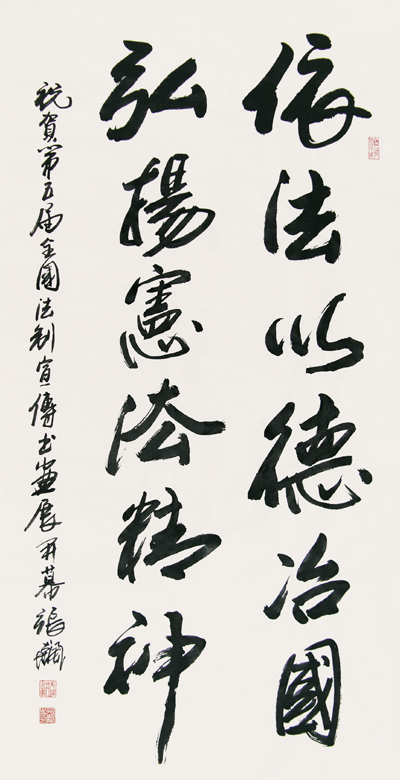 依法以德冶國
弘揚憲法精神
祝賀第五届全國法制宣傳書畫展開幕張飆